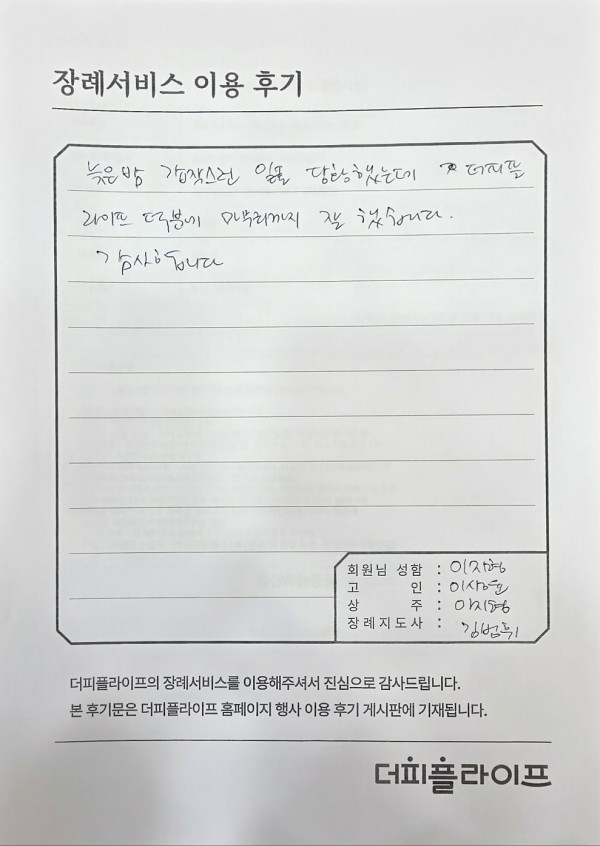 장례서비스 이용 후기
늦은밤 갑작스런 일로 당황했는데 더피플
라이프 덕분에 마무리까지 잘 했습니다.
감사합니다
회원님 성함 : 이지형
고 인 :
상 주 : 이지형
장례지도사 : 김범휘
더피플라이프의 장례서비스를 이용해주셔서 진심으로 감사드립니다.
본 후기문은 더피플라이프 홈페이지 행사 이용 후기 게시판에 기재됩니다.
더피플라이프